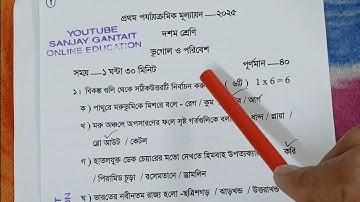 YOUTUBE
SANJAY GANTAIT
ONLINE EDUCATION
প্রথম পর্যায়ক্রমিক মূল্যায়ন – ২০২৫
দশম শ্রেণি
ভূগোল ও পরিবেশ
সময় – ১ ঘন্টা ৩০ মিনিট
পূর্ণমান – ৪০
১। বিকল্প গুলি থেকে সঠিকউত্তরটি নির্বাচন কর (৬টি) 1 x 6 = 6
ক) পাথুরে মরুভূমিকে মিশরে বলে – রেগ / কুম / আর্গ
খ) মরু অঞ্চলে অপসারণের ফলে সৃষ্ট গর্তগুলিকে বলে ধান্দ / প্লায়া /
ব্লো আউট / কেটল
গ) হাতলযুক্ত ডেক চেয়ারের মতো দেখতে হিমবাহ উপত্যকা করি
/ পিরামিড চূড়া / রসেমতানে / ড্রামলিন
ঘ) ভারতের নবীনতম রাজ্য হলো – ছত্রিশগড় / ঝাড়খন্ড / উত্তরাখন্ড